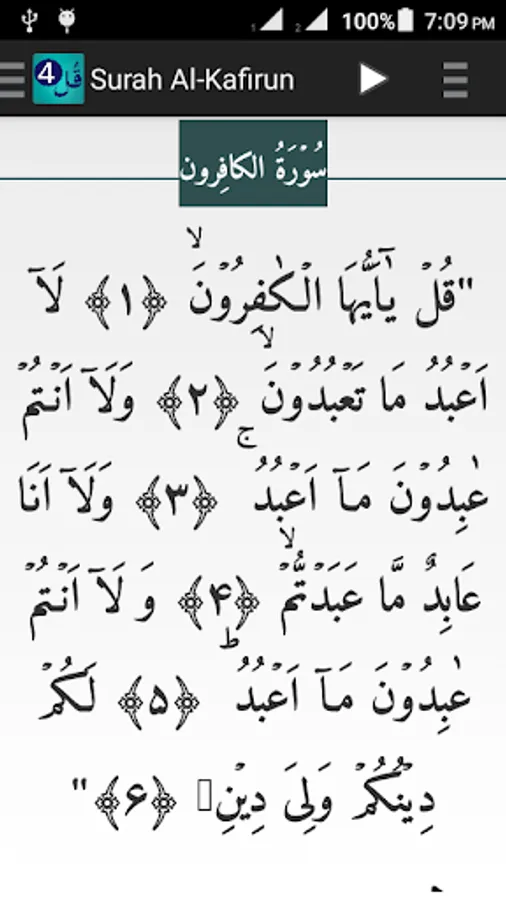 1 2 100% 7:09 PM
4 قُل Surah Al-Kafirun
سُوۡرَةُ الكافِرون
"قُلۡ يٰٓاَيُّهَا الۡكٰفِرُوۡنَۙ ﴿۱﴾ لَاۤ
اَعۡبُدُ مَا تَعۡبُدُوۡنَۙ ﴿۲﴾ وَلَاۤ اَنۡتُمۡ
عٰبِدُوۡنَ مَاۤ اَعۡبُدُ​ۚ ﴿۳﴾ وَلَاۤ اَنَا
عَابِدٌ مَّا عَبَدۡتُّمۡۙ ﴿۴﴾ وَ لَاۤ اَنۡتُمۡ
عٰبِدُوۡنَ مَاۤ اَعۡبُدُ ؕ ﴿۵﴾ لَكُمۡ
دِيۡنُكُمۡ وَلِىَ دِيۡنِ ﴿۶﴾"